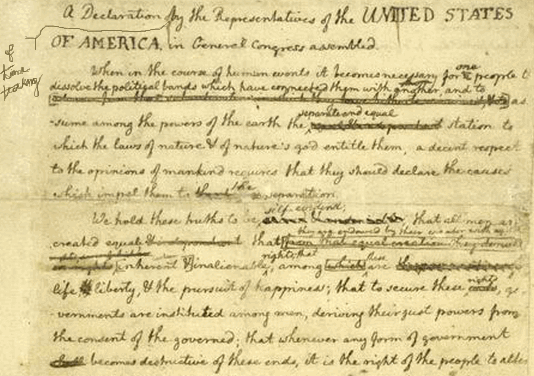 A Declaration by the Representatives of the UNITED STATES
OF AMERICA, in General Congress assembled.
When in the course of human events it becomes necessary for one people to
dissolve the political bands which have connected them with another, and to
as
separate and equal
sume among the powers of the earth the station to
which the laws of nature & of nature's god entitle them, a decent respect
to the opinions of mankind requires that they should declare the causes
which impel them to the separation.
self-evident,
We hold these truths to be that all men are
they are endowed by their creator with
created equal & independent that from that equal creation they derive
rights that these
inherent & inalienable, among which are
life & liberty, & the pursuit of happiness; that to secure these rights, go-
vernments are instituted among men, deriving their just powers from
the consent of the governed; that whenever any form of government
becomes destructive of these ends, it is the right of the people to alter